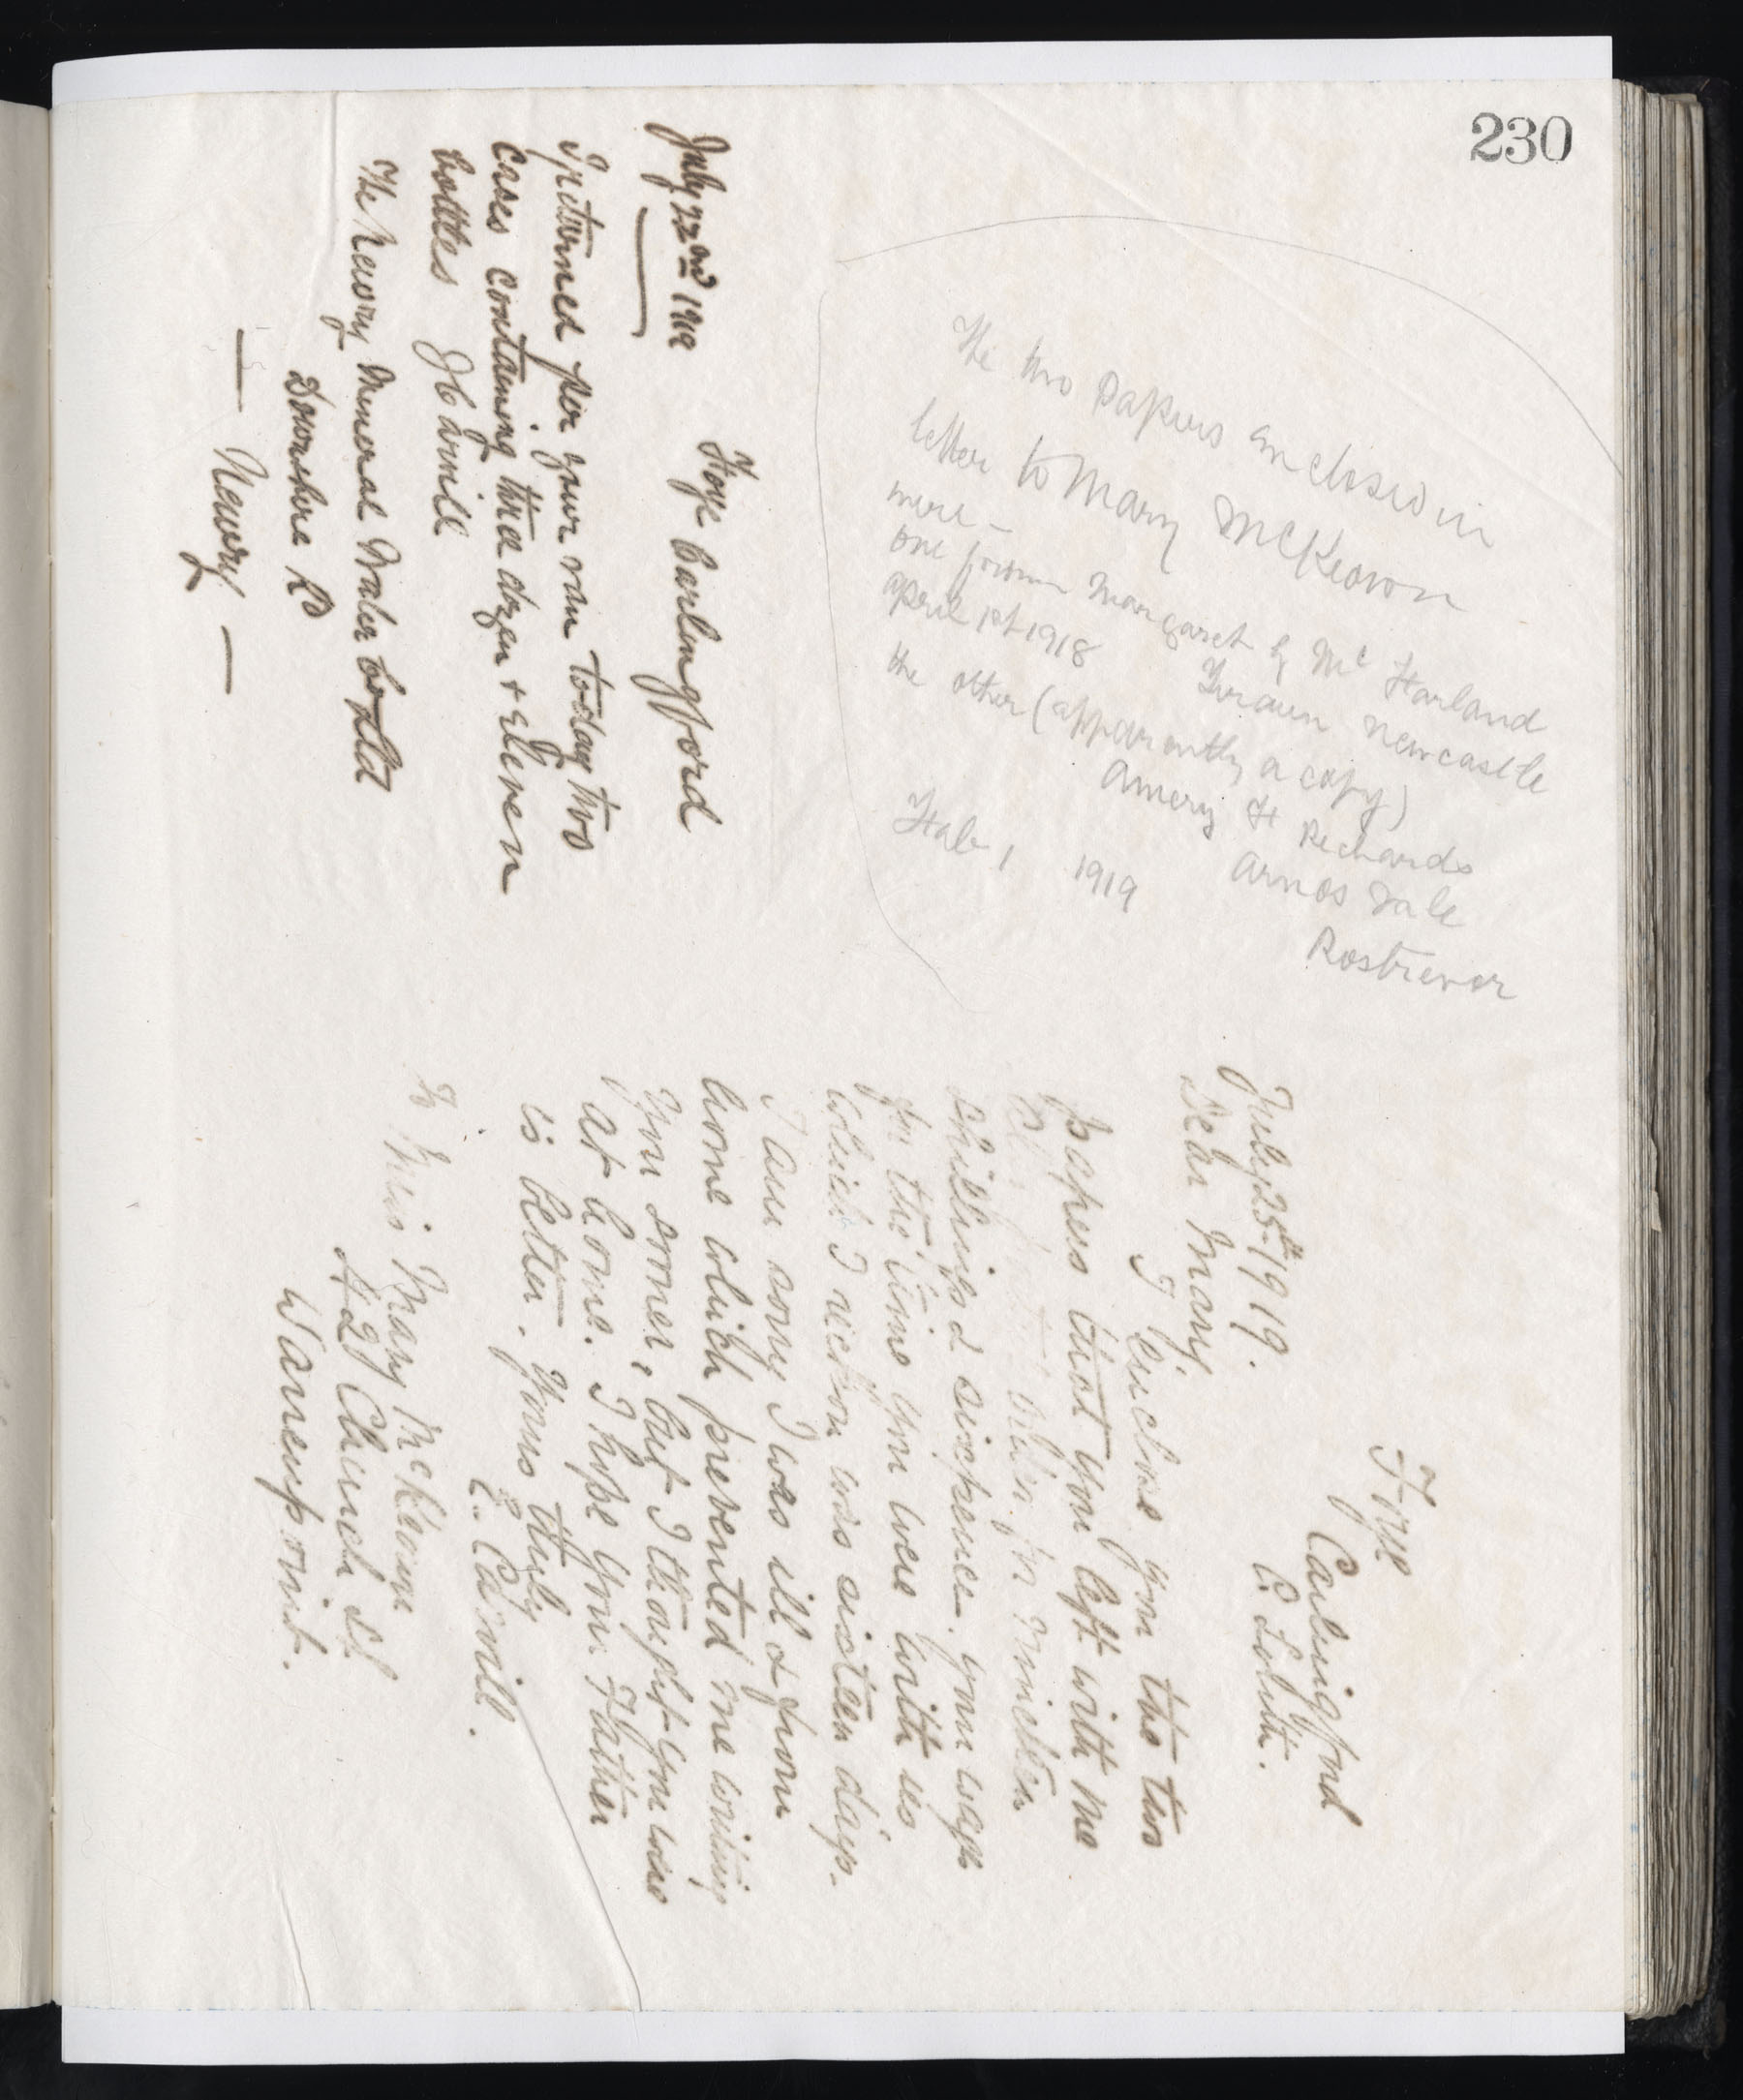 230
The two papers enclosed in
letter to Mary McKeown
were –
one from Margaret G Mc Harland
april 1st 1918 Newcastle
the other (apparently a copy)
Amery H Richards
Arnos Vale
Rostrevor
1919
Foye Carlingford
July 22nd 1919
I returned per your van today two
cases containing three dozen + eleven
bottles J Carvill
The Newry Mineral Water Co Ltd
Downshire Rd
— Newry —
Foye
Carlingford
Co. Louth.
July 25th 1919.
Dear Mary
I enclose you the two
papers that you left with me
shillings & sixpence. your wage
for the time you were with us
which I reckon was sixteen days.
I am sorry I was ill & from
home which prevented me writing
you sooner, but I thought you were
at home. I hope your Father
is better. yours truly
Carvill.
To Miss Mary McKeown
Church St
Warrenpoint.